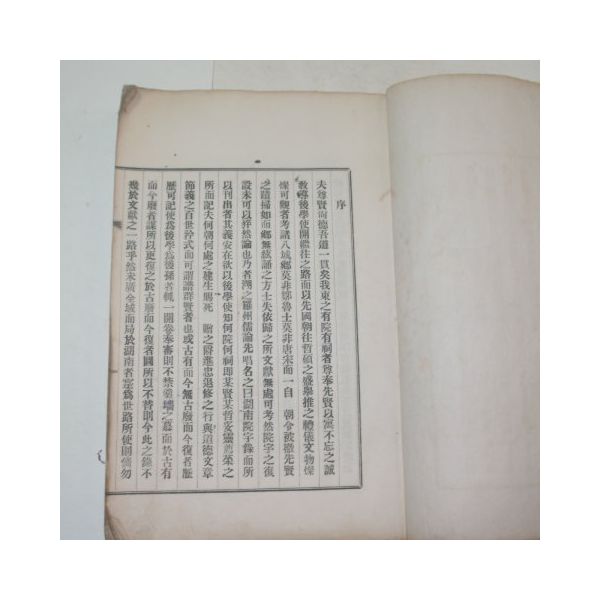 序
夫尊賢尙德吾道一貫矣我東之有院有祠者尊奉先賢以寓不忘之誠
敎導後學使開繼往之路而以先國朝往哲碩之盛擧推之禮儀文物燦
燦可觀者考諸八域鄕莫非鄒魯士莫非唐宋而一自 朝令被撤先賢
之蹟掃如而鄕無絃誦之方士失依歸之所文獻無處可考然院宇之復
設未可以猝然論也乃者湖之羅州儒論先唱名之曰湖南院宇錄而所
以刊出者其義安在欲以後學使知何院何祠即某賢某哲妥靈薦榮之
所而記夫何朝何處之建生賜死 贈之爵進忠退修之行與道德文章
節義之百世矜式而可謂譜群賢者也或古有而今無古廢而今復者歷
歷可記使爲後學爲後孫者輒一開卷奉審則不禁羹墻之慕而於古有
而今廢者謀所以更復之於古廢而今復者圖所以不替則今此之錄不
幾於文獻之一路乎然未廣全域而局於湖南者寔爲世路所使則倘勿